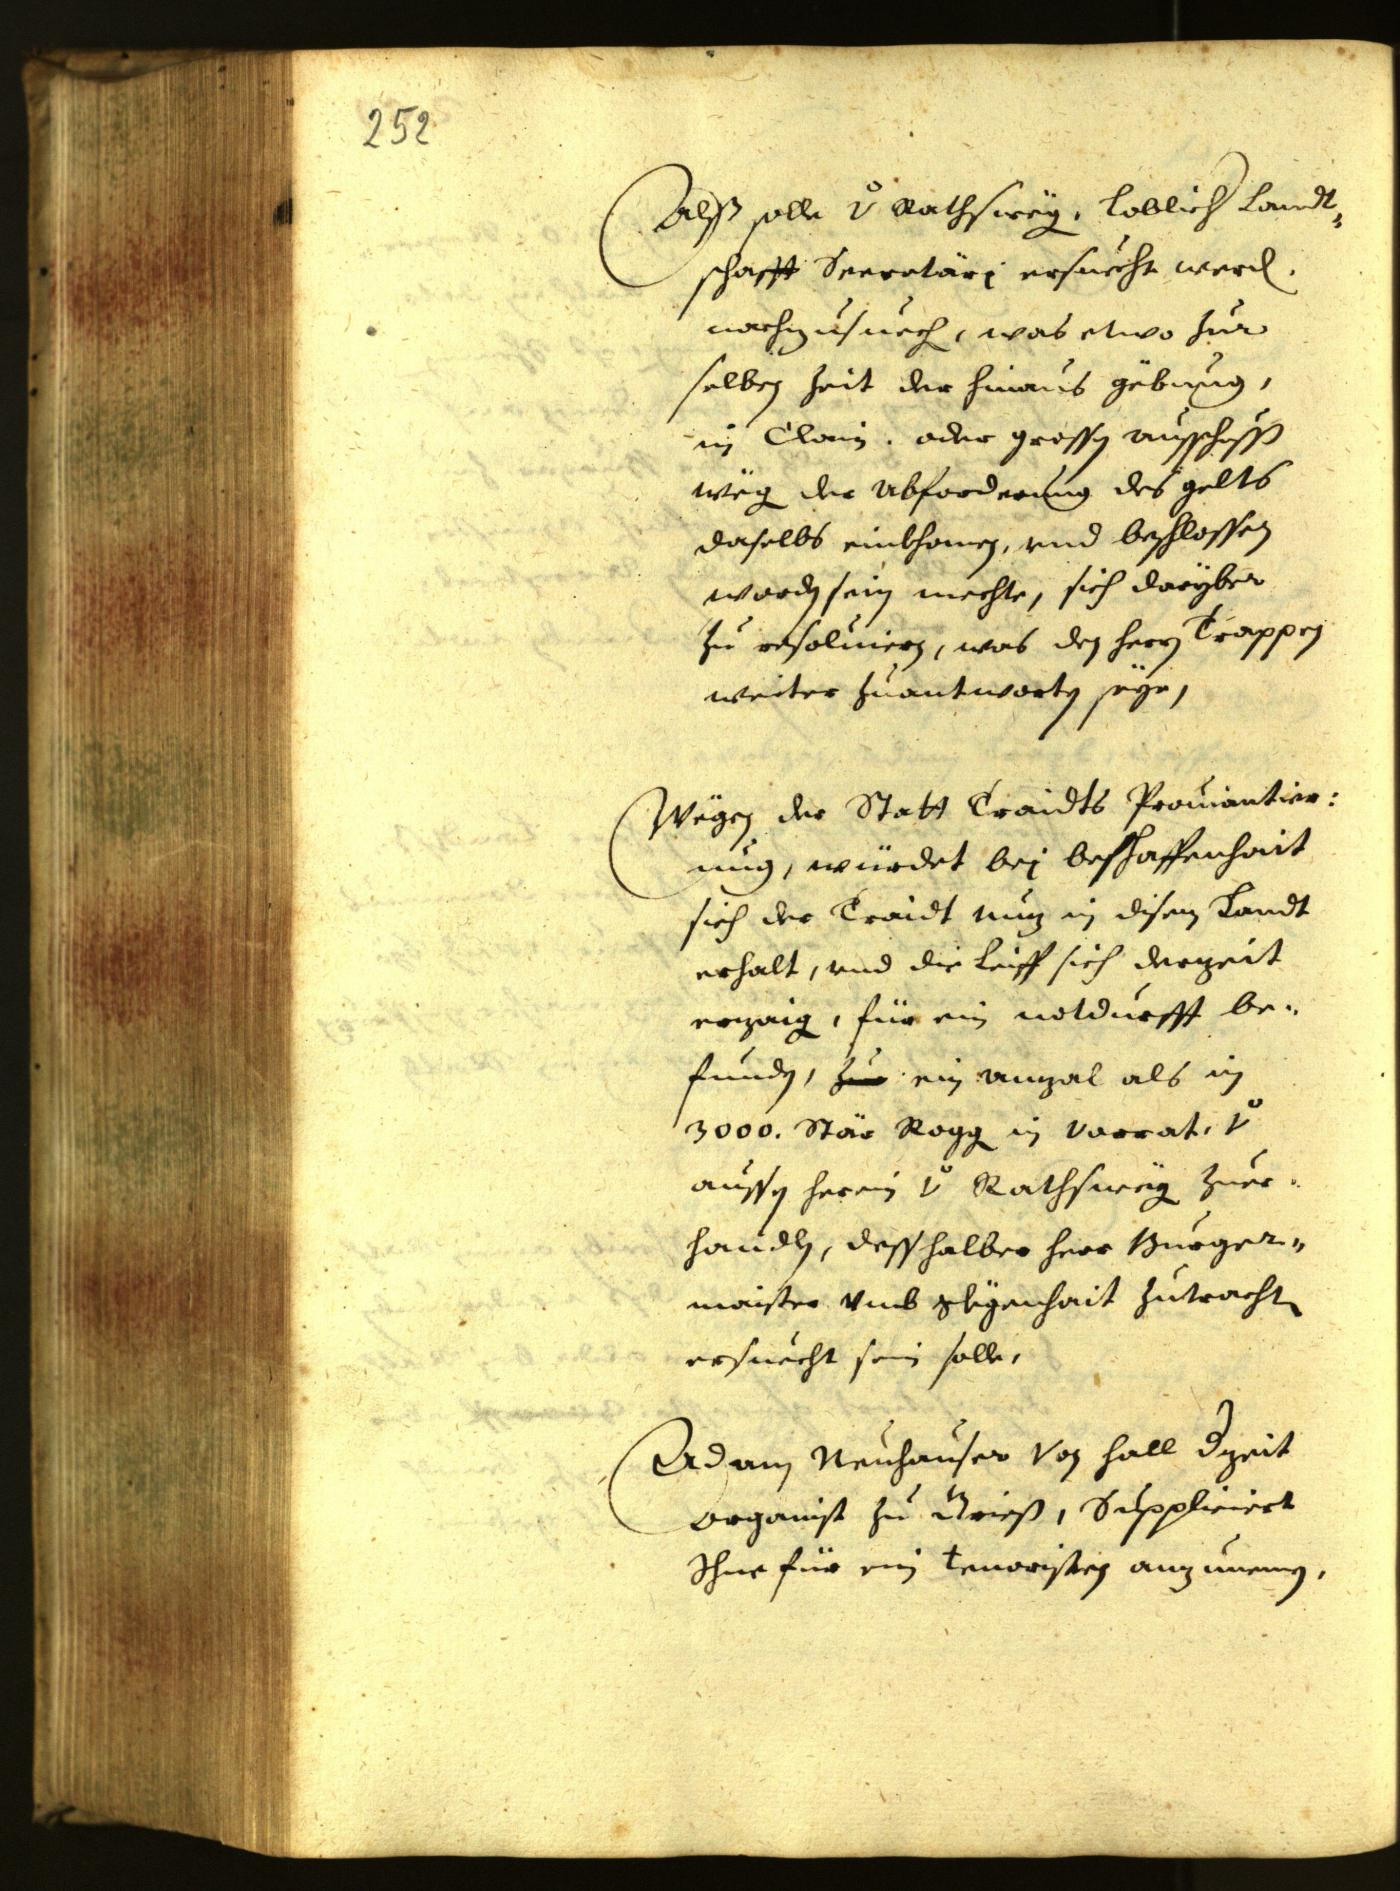 252
Alß solle vo Rathsweg. loblich Landt„
schafft Secretärj ersuecht werd.
nachzusuech, was etwo zur
selben Zeit der hinaus gebung,
in Clain. oder grossen ausschuß
weg der Abforderung des gelts
daselbs einkhomen, vnd beschlossen
worden sein mechte, sich darÿber
zu resoluiern, was den herrn Trappen
weiter zuantworten seye,
Wegen der Statt Traidts Prouiantier:
ung, würdet bej beschaffenhait
sich der Traidt nutz in disem Landt
erhalt, vnd die leüff sich derzeit
erzaig, für ein notdurfft be„
funden, ein anzal als in
3000. Stär Rogg in Vorrat. vo
aussen herein vo Rathsweg zuer„
handlen, desshalber herr Burger„
maister vmb glegenhait zutrachten
ersuecht sein solle,
Adam Neuhauser Von hall dzeit
organist zu Griess, Suppliciert
Ihne für ein tenoristen anzunemen,